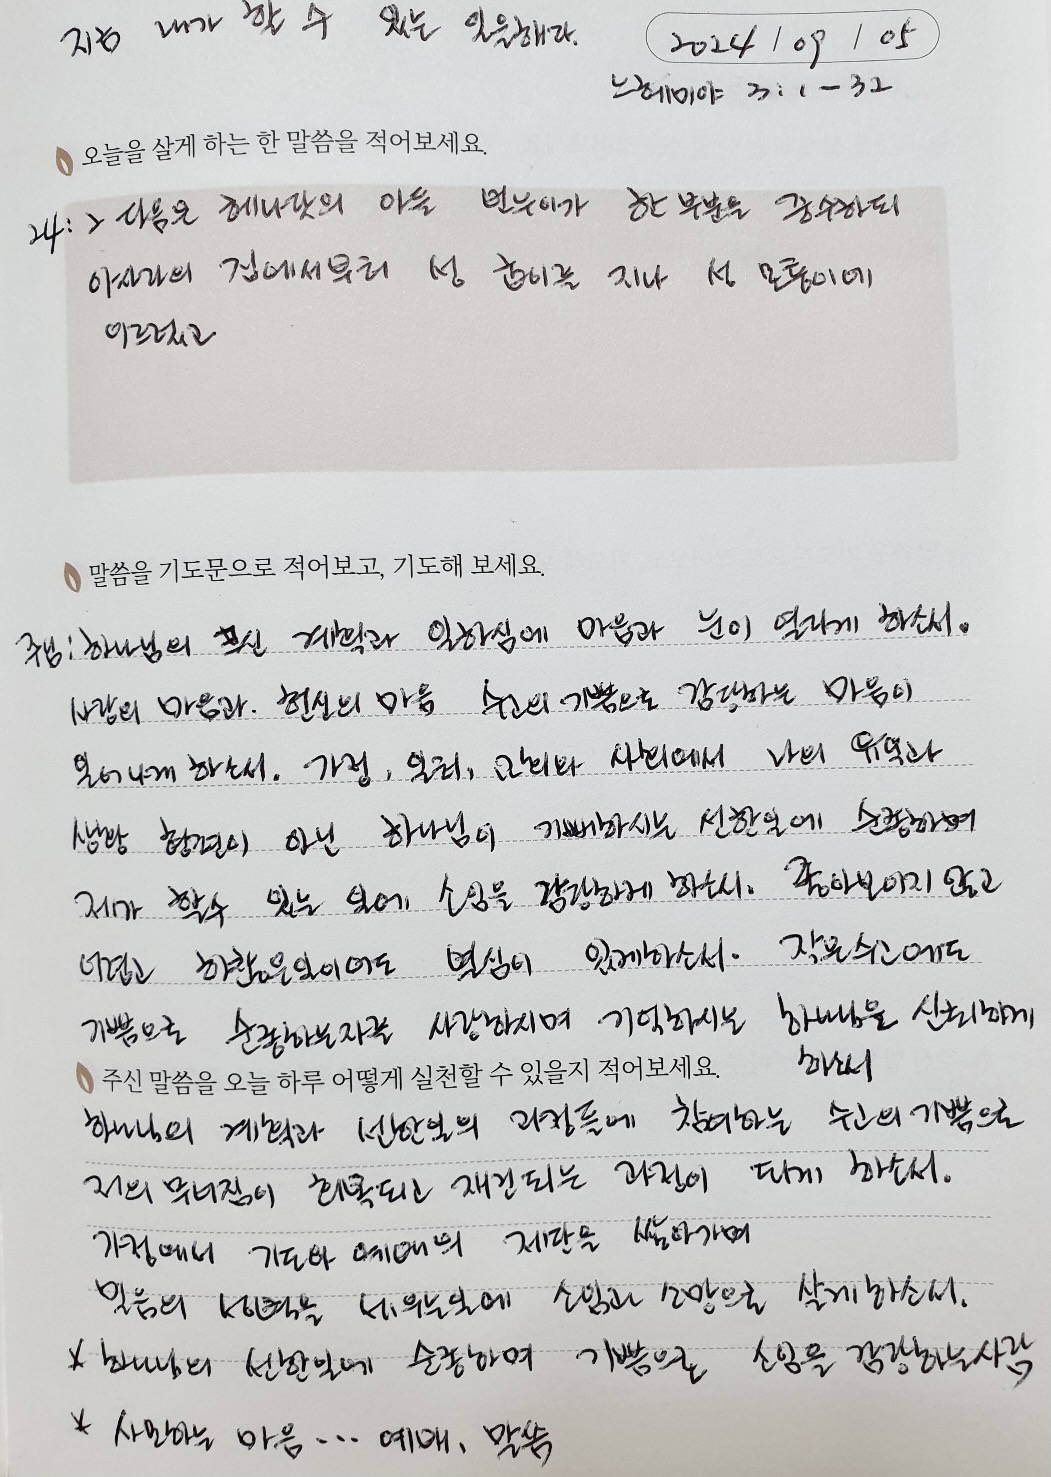 지금 내가 할 수 있는 일을해라.
2024 / 09 / 05
느헤미야 3:1-32
오늘을 살게 하는 한 말씀을 적어보세요.
24: > 다음은 헤나닷의 아들 빈누이가 한 부분을 중수하되
아사랴의 집에서부터 성 굽이를 지나 성 모퉁이에
이르렀고
말씀을 기도문으로 적어보고, 기도해 보세요.
주님: 하나님의 크신 계획과 일하심에 마음과 눈이 열리게 하소서.
사랑의 마음과. 헌신의 마음 수고의 기쁨으로 감당하는 마음이
일어나게 하소서. 가정, 일터, 교회와 사회에서 나의 유익과
생각 참견이 아닌 하나님이 기뻐하시는 선한일에 순종하며
제가 할수 있는 일에 소임을 감당하게 하소서. 좋아보이지 않고
더럽고 하찮은일이어도 열심이 있게하소서. 작은수고에도
기쁨으로 순종하는자를 사랑하시며 기억하시는 하나님을 신뢰하게
하소서
주신 말씀을 오늘 하루 어떻게 실천할 수 있을지 적어보세요.
하나님의 계획과 선한일의 과정들에 참여하는 수고의 기쁨으로
저의 무너짐이 회복되고 재건되는 과정이 되게 하소서.
가정에서 기도와 예배의 제단을 쌓아가며
믿음의 성벽을 세우는일에 소임과 소망으로 살게하소서.
* 하나님의 선한일에 순종하며 기쁨으로 소임을 감당하는사람
* 사모하는 마음... 예배, 말씀